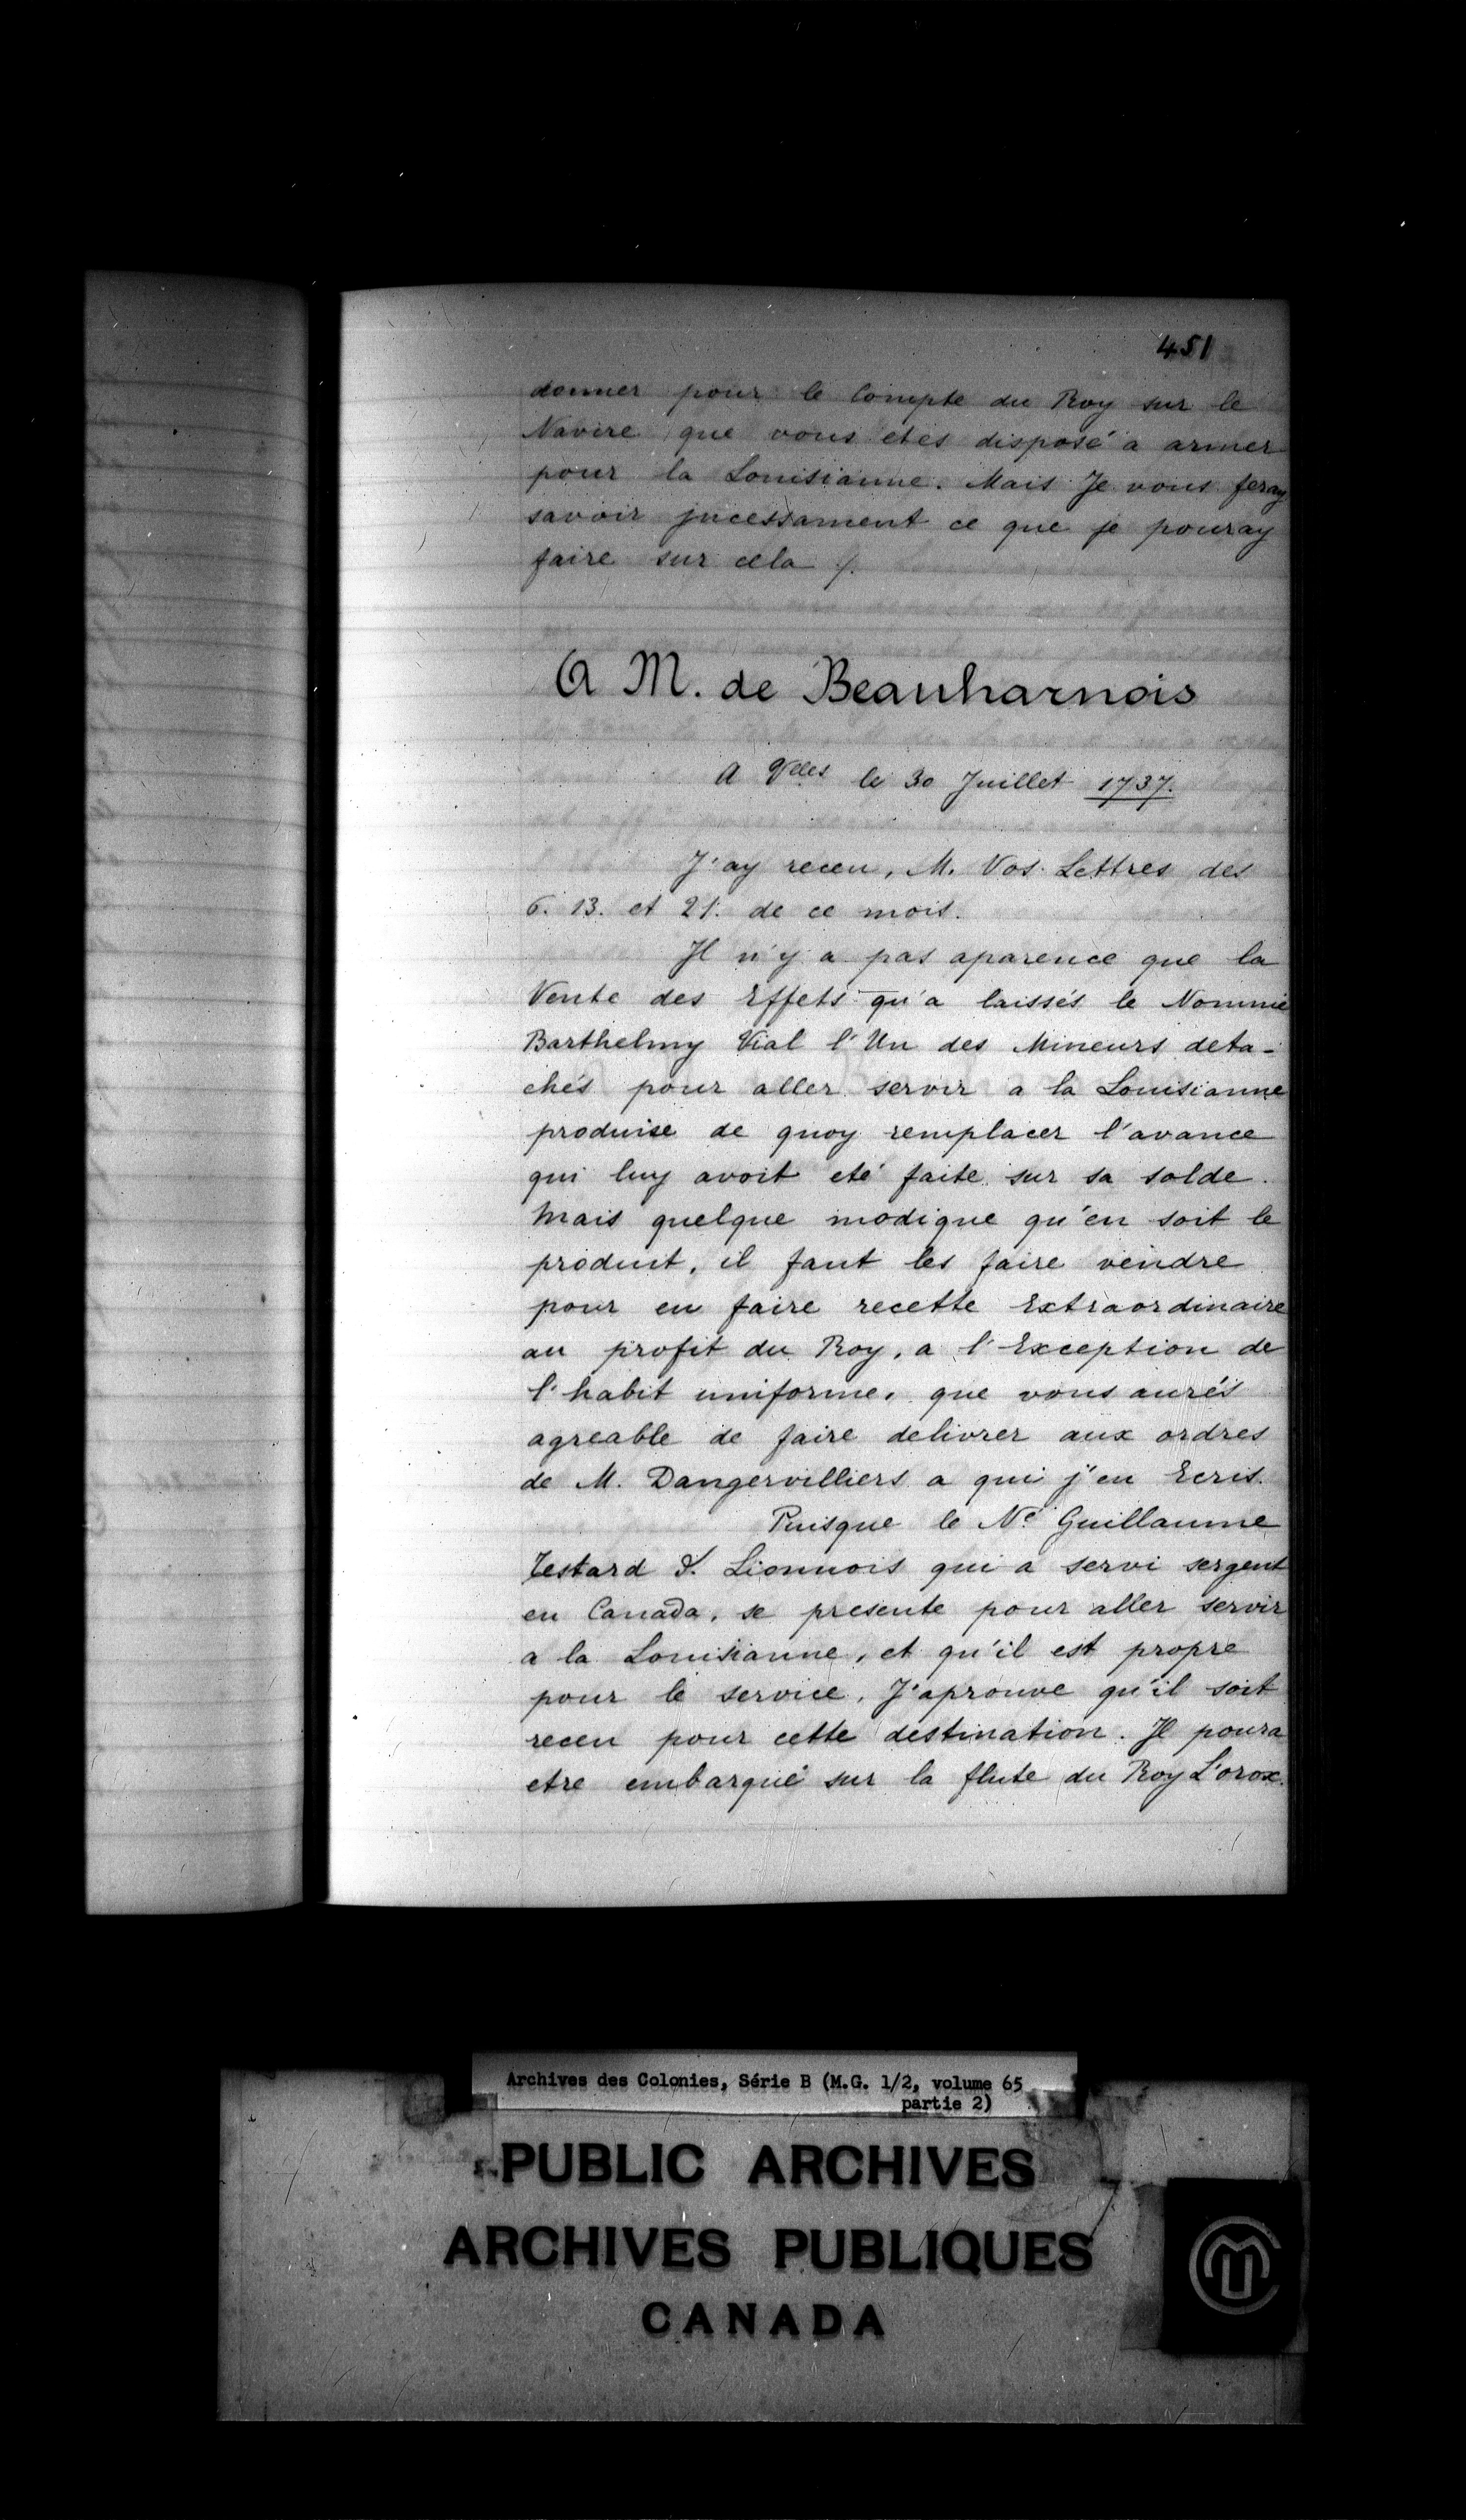 451
donner pour le Compte du Roy sur le
Navire que vous etes disposé a armer
pour la Louisianne. Mais Je vous feray
savoir jncessament ce que je pouray
faire sur cela ./.
A M. de Beauharnois
A Vlles le 30 Juillet 1737.
J'ay receu, M. Vos Lettres des
6. 13. et 21. de ce mois.
Il n'y a pas aparence que la
Vente des Effets qu'a laissés le Nommé
Barthelmy Vial l'Un des Mineurs deta-
chés pour aller servir a la Louisianne
produise de quoy remplacer l'avance
qui luy avoit eté faite sur sa solde.
Mais quelque modique qu'en soit le
produit, il faut les faire vendre
pour en faire recette Extraordinaire
au profit du Roy, a l'Exception de
l'habit uniforme, que vous aurés
agreable de faire delivrer aux ordres
de M. Dangervilliers a qui j'en Ecris.
Puisque le Né Guillaume
Testard d. Lionnois qui a servi sergent
en Canada, se presente pour aller servir
a la Louisianne, et qu'il est propre
pour le service, J'aprouve qu'il soit
receu pour cette destination. Il poura
etre embarqué sur la flute du Roy L'orox.
Archives des Colonies, Série B (M.G. 1/2, volume 65
partie 2)
PUBLIC ARCHIVES
ARCHIVES PUBLIQUES
CANADA